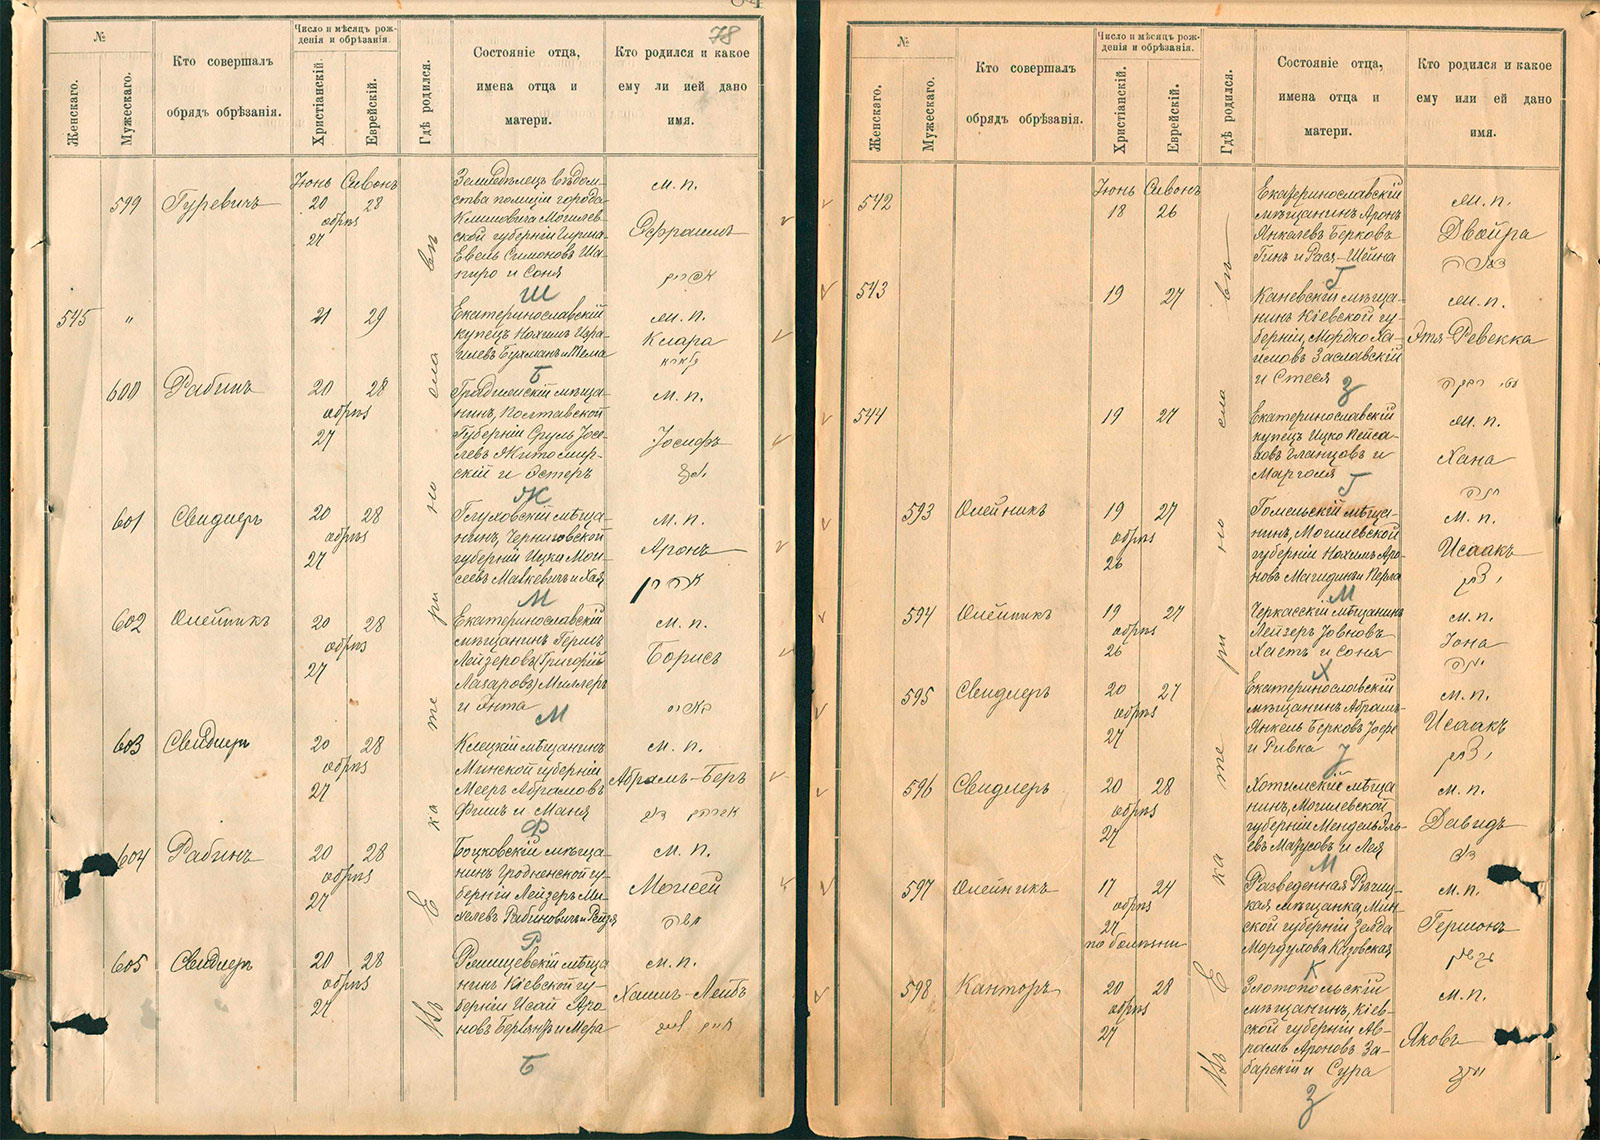 78
№
Женскаго.
Мужескаго.
Кто совершалъ
обрядъ обрѣзанія.
Число и мѣсяцъ рож-
денія и обрѣзанія.
Христіанскій.
Еврейскій.
Гдѣ родился.
Состояніе отца,
имена отца и
матери.
Кто родился и какое
ему ли ией дано
имя.
Въ Екатеринославѣ
599
Гуревичъ
Іюнь Сивонъ
20 28
обрѣз
27
Земледѣлецъ вѣдом-
ства полиціи города
Климовича Могилев-
ской губерніи Гирша
Евель Симоновъ Ша-
пиро и Соня
Ш
м. п.
Эфраимъ
אפרים
545
"
21 29
Екатеринославскій
купецъ Нохимъ Изра-
илевъ Бухманъ и Тема
Б
м. п.
Клара
קלארא
600
Рабинъ
20 28
обрѣз
27
Градижскій мѣща-
нинъ, Полтавской
Губерніи Сруль Іосе-
левъ Житомир-
скій и Эстеръ
Ж
м. п.
Іосифъ
601
Свидлеръ
20 28
обрѣз
27
Глуховскій мѣща-
нинъ, Черниговской
губерніи Ицка Мои-
сеевъ Мавкевичъ и Хая
М
м. п.
Аронъ
אהרן
602
Олейникъ
20 28
обрѣз
27
Екатеринославскій
мѣщанинъ Гершъ
Лейзеровъ (Григорій
Лазаровъ) Миллеръ
и Янта
М
м. п.
Борисъ
603
Свидлеръ
20 28
обрѣз
27
Клецкій мѣщанинъ
Минской губерніи
Мееръ Абрамовъ
Фишъ и Маня
Ф
м. п.
Абрамъ-Беръ
אברהם בער
604
Рабинъ
20 28
обрѣз
27
Боцковскій мѣща-
нинъ Гродненской гу-
берніи Лейзеръ Ми-
хелевъ Рабиновичъ и Рейзя
Р
м. п.
Моисей
משה
605
Свидлеръ
20 28
обрѣз
27
Ржищевскій мѣща
нинъ Кіевской гу-
берніи Исай Аро-
новъ и Мера
Б
м. п.
Хаимъ-Лейбъ
חיים לייב
№
Женскаго.
Мужескаго.
Кто совершалъ
обрядъ обрѣзанія.
Число и мѣсяцъ рож-
денія и обрѣзанія.
Христіанскій.
Еврейскій.
Гдѣ родился.
Состояніе отца,
имена отца и
матери.
Кто родился и какое
ему или ей дано
имя.
Въ Екатеринославѣ
542
Іюнь Сивонъ
18 26
Екатеринославскій
мѣщанинъ Аронъ
Янкелевъ Берковъ
Гинъ и Рася-Шейна
Г
м. п.
Двойра
דבורה
543
19 27
Каневскій мѣща-
нинъ Кіевской гу-
берніи, Мордко Ха-
имовъ Заславскій
и Стеся
З
м. п.
Этя-Ревекка
אטי רבקה
544
19 27
Екатеринославскій
купецъ Ицко Пейса-
ховъ Гланцовъ и
Марголя
Г
м. п.
Хана
חנה
593
Олейникъ
19 27
обрѣз
26
Гомельскій мѣща-
нинъ, Могилевской
губерніи Нохимъ Аро-
новъ Магидинъ и Перла
М
м. п.
Исаакъ
יצחק
594
Олейникъ
19 27
обрѣз
26
Черкасскій мѣщанинъ
Лейзеръ Іовновъ
Хаетъ и Соня
Х
м. п.
Іона
יונה
595
Свидлеръ
20 27
обрѣз
27
Екатеринославскій
мѣщанинъ Абрамъ-
Янкель Берковъ Іоффе
и Ривка
м. п.
Исаакъ
יצחק
596
Свидлеръ
20 28
обрѣз
27
Хотимскій мѣща
нинъ, Могилевской
губерніи Мендель Эль-
евъ Мазусовъ и Лея
М
м. п.
Давидъ
דוד
597
Олейникъ
17 24
обрѣз
27
по болѣзни
Разведенная Рѣчиц-
кая мѣщанка, Мин-
ской губерніи Зелда
Мордухова Казовская
К
м. п.
Гершонъ
גרשון
598
Канторъ
20 28
обрѣз
27
Златопольскій
мѣщанинъ, Кіев-
ской губерніи Ав-
рамъ Ароновъ За-
барскій и Сура
З
м. п.
Яковъ
יעקב